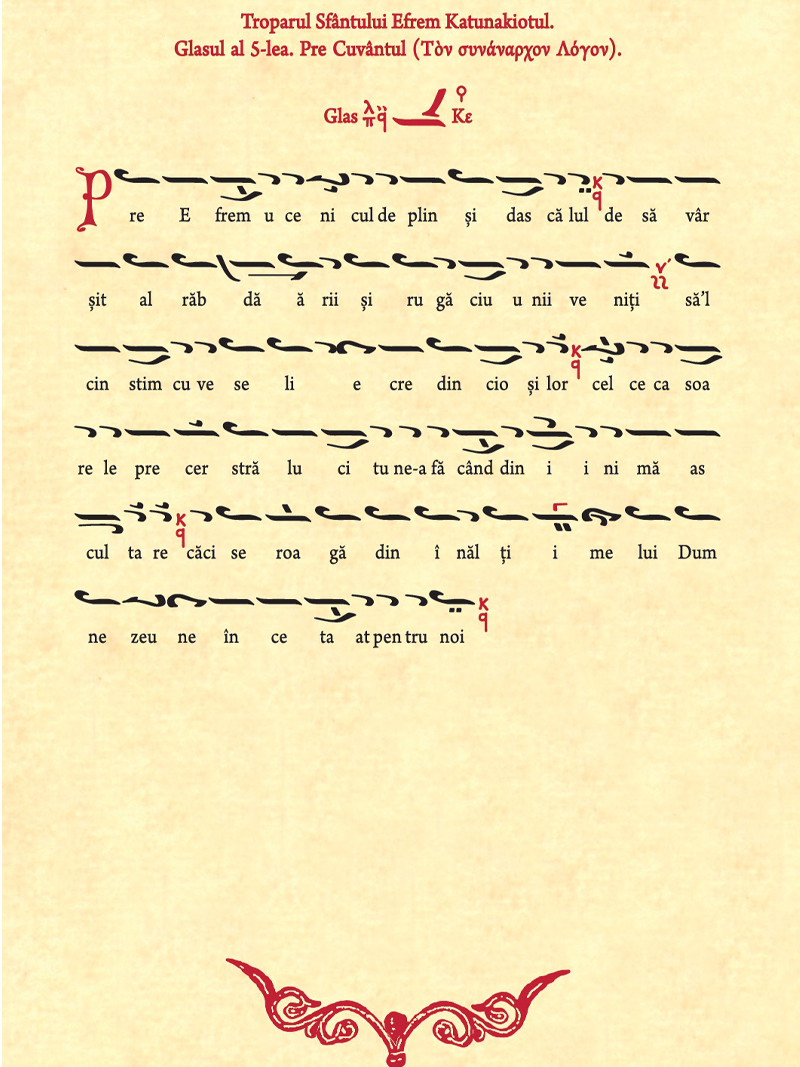 Troparul Sfântului Efrem Katunakiotul.
Glasul al 5-lea. Pre Cuvântul (Τὸν συνάναρχον Λόγον).
Glas λ π q Κε
P re E frem u ce ni cul de plin și das că lul de să vâr
șit al răb dă ă rii și ru gă ciu u nii ve niți să’l
cin stim cu ve se li e cre din cio și lor cel ce ca soa
re le pre cer stră lu ci tu ne-a fă când din i i ni mă as
cul ta re căci se roa gă din î năl ți i me lui Dum
ne zeu ne în ce ta at pen tru noi